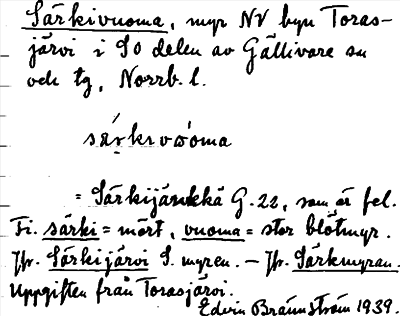 Särkivuoma, myr NV byn Toras-
järvi i SO delen av Gällivare sn
och tg, Norrb. l.
särkivuoma
= Särkijänkkä G. 22, som är fel.
Fi. särki = mört, vuoma = stor blötmyr.
Jfr. Särkijärvi S. myren. – Jfr. Särkmyran.
Uppgiften från Torasjärvi.
Edvin Brännström 1939.